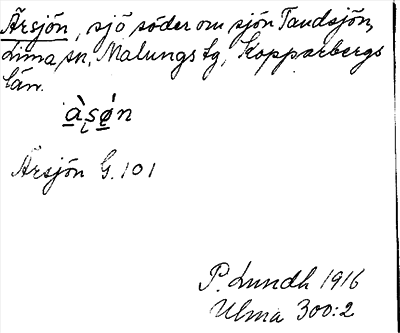 Ärsjön, sjö söder om sjön Tandsjön,
Lima sn, Malungs tg, Kopparbergs
län.
à̱ʂǿ̱n
Ärsjön G. 101
P. Lundh 1916
Ulma 300:2